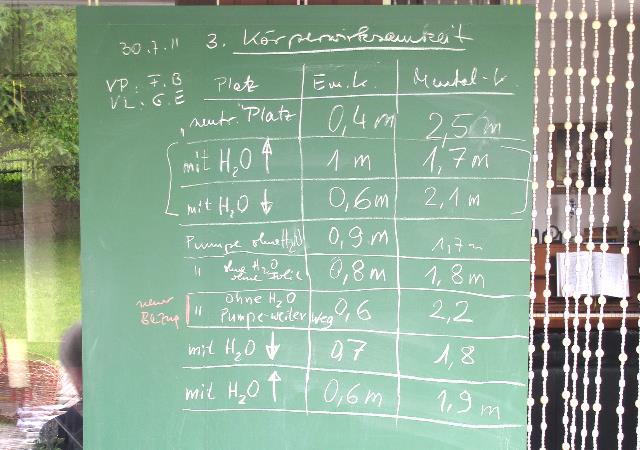 30.7.11 3. Körperwirksamkeit
VP: F.B
VL: G.E
Platz Em.k. Mental-k.
"neutr." Platz 0,4 m 2,5 m
mit H2O ↑ 1 m 1,7 m
mit H2O ↓ 0,6 m 2,1 m
Pumpe ohne H2O 0,9 m 1,7 m
" ohne H2O ohne Folie 0,8 m 1,8 m
neuer Bezug " ohne H2O Pumpe weiter weg 0,6 2,2
mit H2O ↓ 0,7 1,8
mit H2O ↑ 0,6 m 1,9 m